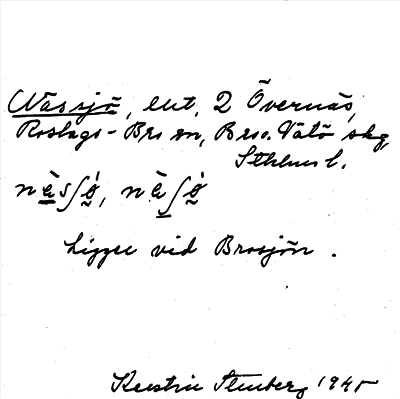 Nässjö, lht, 2 Övernäs,
Roslags-Bro sn, Bro o. Vätö skg
Sthlms l.
nä̀sʃö̀, nä̀ʃö̀
Ligger vid Brosjön.
Kerstin Stenberg 1945